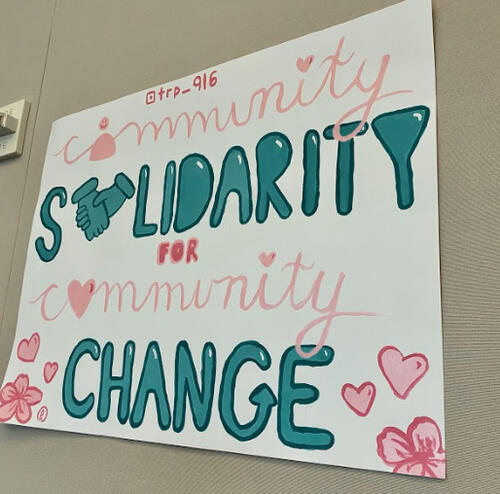 @trp_916
community
SOLIDARITY
FOR
community
CHANGE